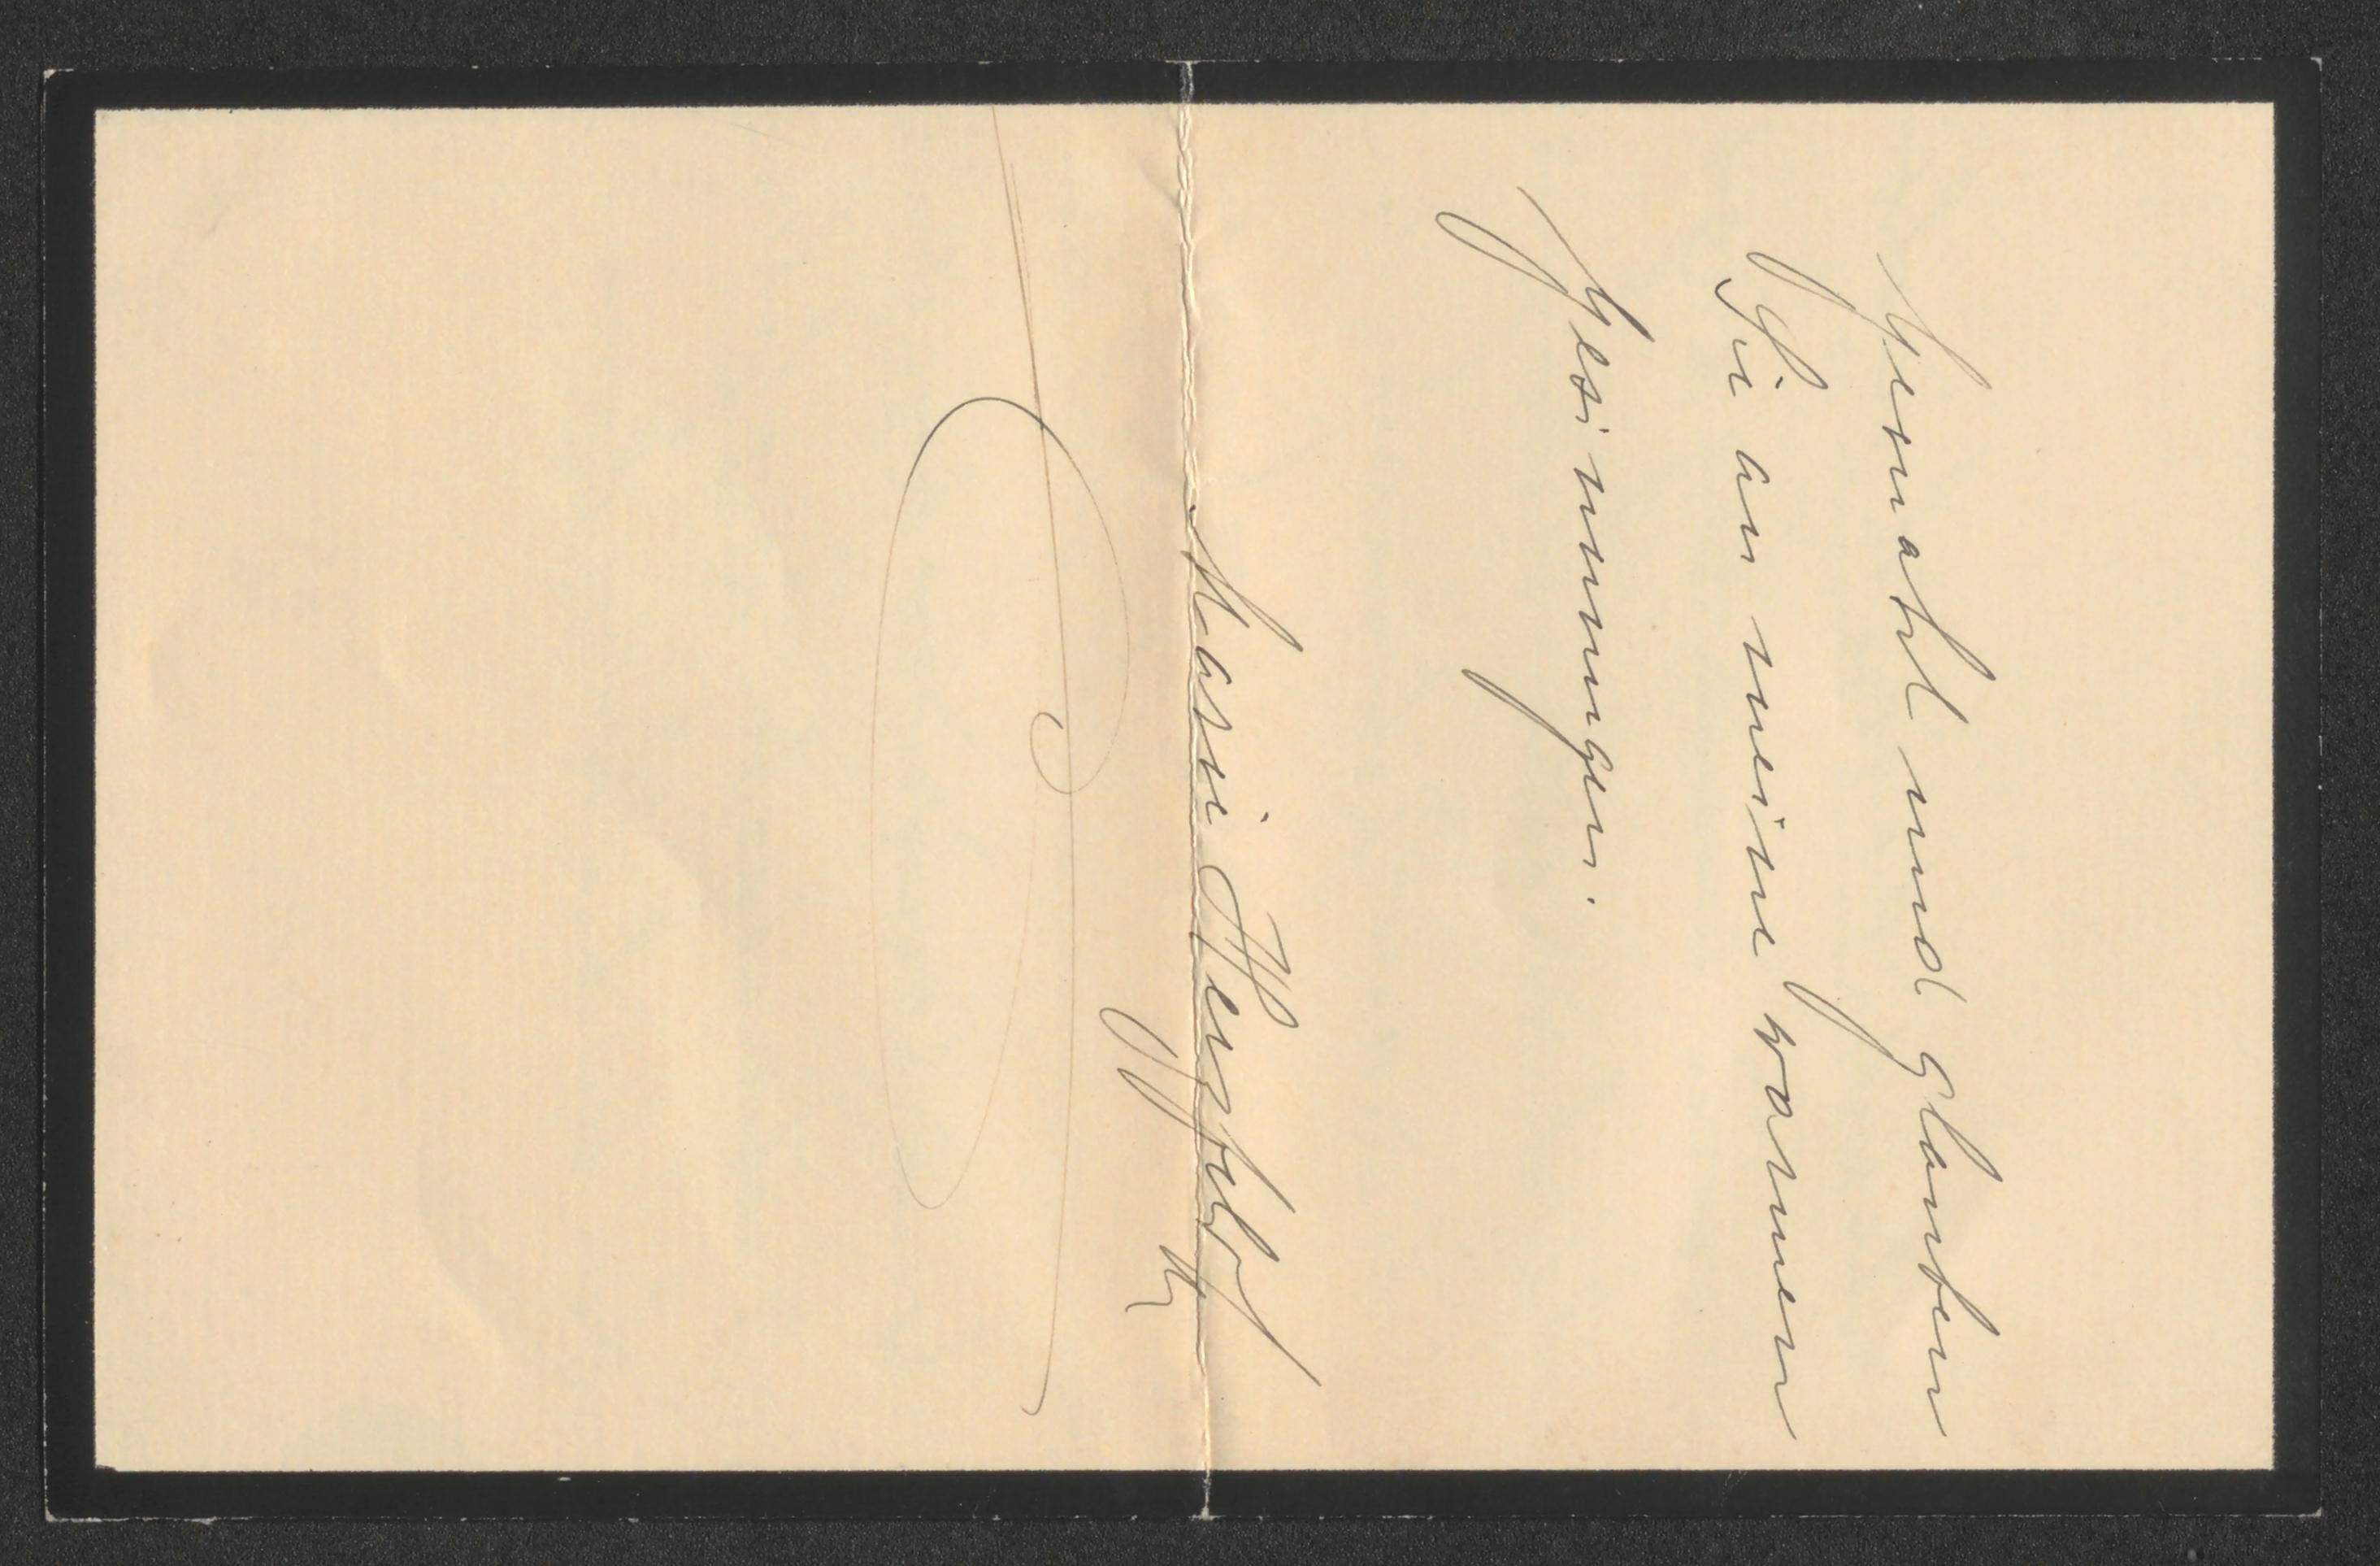 Gemahl und glauben
Sie an meine warmen
Gesinnungen.
Marie Herzfeld